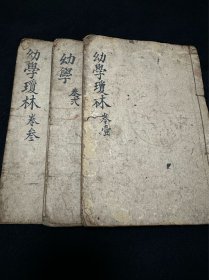 幼學瓊林 卷壹
幼學 卷弍
幼學瓊林 卷叁